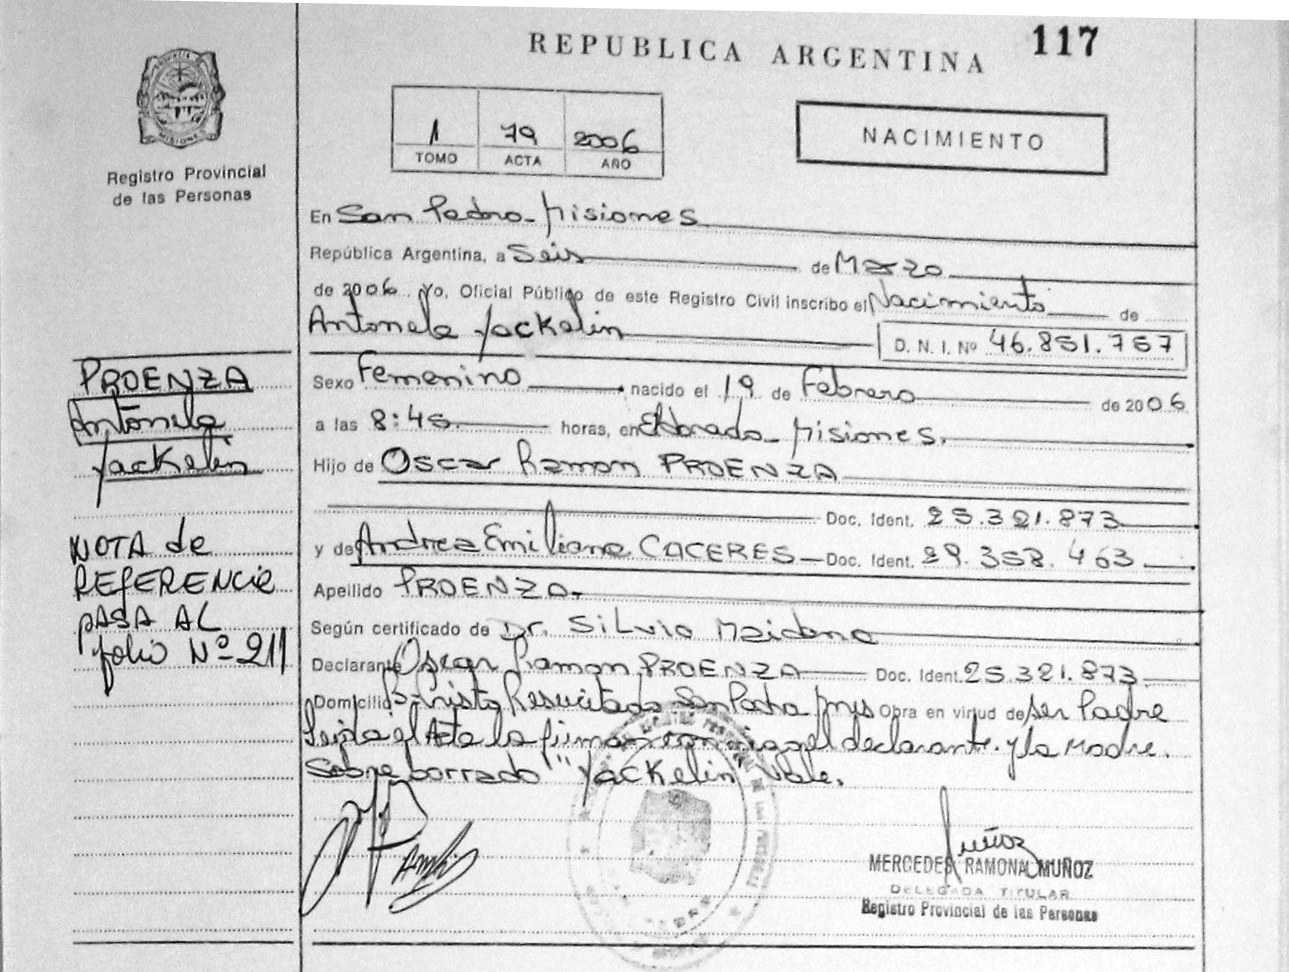 REPUBLICA ARGENTINA
117
MISIONES
Registro Provincial
de las Personas
1 79 2006
TOMO ACTA AÑO
NACIMIENTO
En San Pedro - Misiones
República Argentina, a Seis de Marzo
de 2006 Yo, Oficial Público de este Registro Civil inscribo el Nacimiento de
Antonela Yackelin D. N. I. Nº 46.851.757
Sexo Femenino nacido el 19 de Febrero de 2006
a las 8:45 horas, en Eldorado - Misiones.
Hijo de Oscar Ramon PROENZA
Doc. Ident. 25.321.873
y de Andrea Emiliana CACERES - Doc. Ident. 29.358.463
Apellido PROENZA.
Según certificado de Dr. Silvio Maidana
Declarante Oscar Ramon PROENZA Doc. Ident. 25.321.873
Domicilio Bº Cristo Resucitado San Pedro Mns Obra en virtud de ser Padre
Leida el Acta la firman conmigo el declarante y la Madre.
Sobre borrado "Yackelin Vale.
PROENZA
Antonela
Yackelin
NOTA de
REFERENCIA
PASA AL
folio Nº 211
Muñoz
MERCEDES RAMONA MUÑOZ
DELEGADA TITULAR
Registro Provincial de las Personas